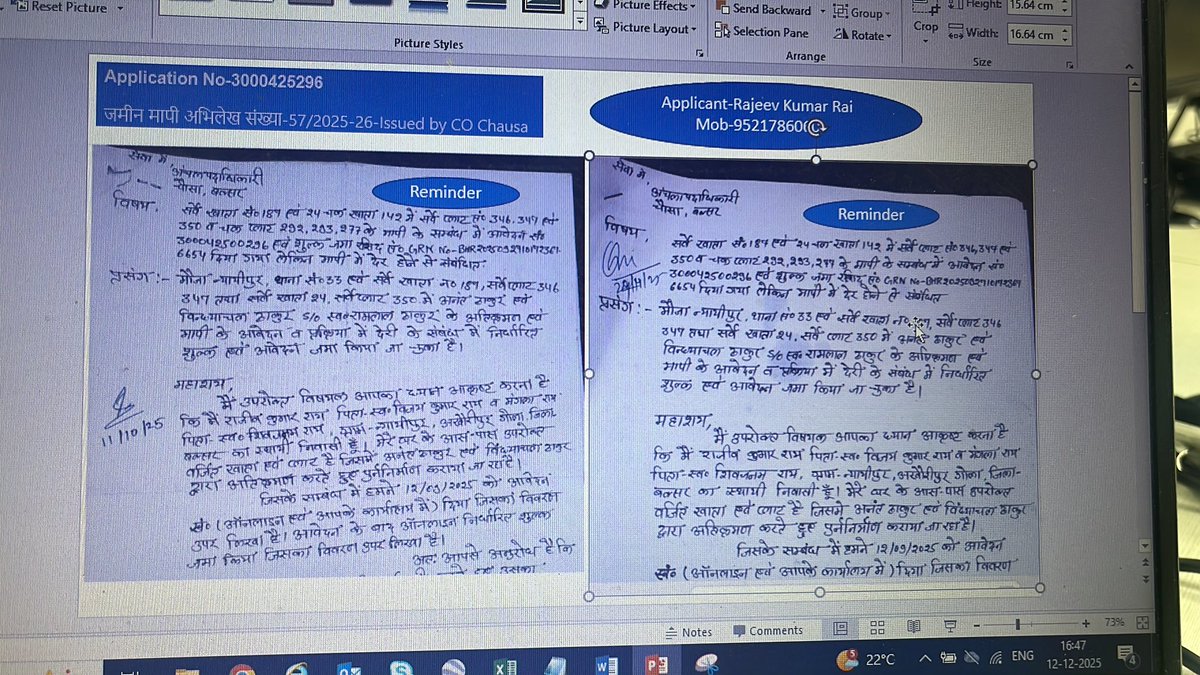 Reset Picture
Picture Styles
Picture Effects
Picture Layout
Send Backward
Selection Pane
Group
Rotate
Arrange
Crop
Height: 15.64 cm
Width: 16.64 cm
Size
Application No-3000425296
जमीन मापी अभिलेख संख्या-57/2025-26-Issued by CO Chausa
Applicant-Rajeev Kumar Rai
Mob-952178600
सेवा में
अंचलाधिकारी
चौसा, बक्सर
Reminder
विषय
सर्वे खाता सं० 187 एवं 24 चक खाता 142 में सर्वे प्लाट सं० 346, 347 एवं
350 व चक प्लाट 292, 293, 277 के मापी के सम्बंध में आवेदन सं०
300042500296 एवं शुल्क जमा रसीद सं० GRN No-
6654 दिया गया लेकिन मापी में देर होने से संबंधित
प्रसंग :- मौजा-न्यायीपुर, थाना सं० 33 एवं सर्वे खाता न० 187, सर्वे प्लाट 346
347 तथा सर्वे खाता 24, सर्वे प्लाट 350 में अनंत ठाकुर एवं
विन्ध्याचल ठाकुर S/o स्व० रामलाल ठाकुर के अतिक्रमण एवं
मापी के आवेदन व प्रक्रिया में देरी के संबंध में निर्धारित
शुल्क एवं आवेदन जमा किया जा चुका है।
11/10/25
महाशय,
मैं उपरोक्त विषयक आपका ध्यान आकृष्ट करना है
कि मैं राजीव कुमार राय पिता-स्व० विजय कुमार राय व मंगला राय
पिता-स्व० शिवजनम राय, ग्राम-न्यायीपुर, अखौरीपुर गोला, जिला-
बक्सर का स्थायी निवासी हूँ। मेरे घर के आस-पास उपरोक्त
वर्जित खाता एवं प्लाट है जिसमें अनंत ठाकुर एवं विंध्याचल ठाकुर
द्वारा अतिक्रमण करते हुए पुर्ननिर्माण कराया जा रहा है।
जिसके सम्बंध में हमने 12/09/2025 को आवेदन
सं० (ऑनलाइन एवं आपके कार्यालय में) दिया जिसका विवरण
उपर लिखा है। आवेदन के बाद ऑनलाइन निर्धारित शुल्क
जमा किया जिसका विवरण उपर लिखा है।
अतः आपसे अनुरोध है कि
उसका
सेवा में,
अंचलापदाधिकारी
चौसा, बक्सर
Reminder
विषय
सर्वे खाता सं० 187 एवं 24 चक खाता 142 में सर्वे प्लाट सं० 346, 347 एवं
350 व चक प्लाट 292, 293, 277 के मापी के सम्बंध में आवेदन सं०
300042500296 एवं शुल्क जमा रसीद सं० GRN No-
6654 दिया गया लेकिन मापी में देर होने से संबंधित
प्रसंग :- मौजा-न्यायीपुर, थाना सं० 33 एवं सर्वे खाता न० सर्वे प्लाट 346
347 तथा सर्वे खाता 24, सर्वे प्लाट 350 में अनंत ठाकुर एवं
विन्ध्याचल ठाकुर S/o स्व० रामलाल ठाकुर के अतिक्रमण एवं
मापी के आवेदन व प्रक्रिया में देरी के संबंध में निर्धारित
शुल्क एवं आवेदन जमा किया जा चुका है।
महाशय,
मैं उपरोक्त विषयक आपका ध्यान आकृष्ट करना है
कि मैं राजीव कुमार राय पिता-स्व० विजय कुमार राय व मंगला राय
पिता-स्व० शिवजनम राय, ग्राम-न्यायीपुर, अखौरीपुर गोला, जिला-
बक्सर का स्थायी निवासी हूँ। मेरे घर के आस-पास उपरोक्त
वर्जित खाता एवं प्लाट है जिसमें अनंत ठाकुर एवं विंध्याचल ठाकुर
द्वारा अतिक्रमण करते हुए पुर्ननिर्माण कराया जा रहा है।
जिसके सम्बंध में हमने 12/09/2025 को आवेदन
सं० (ऑनलाइन एवं आपके कार्यालय में) दिया जिसका विवरण
Notes
Comments
73%
22°C
ENG
16:47
12-12-2025
4